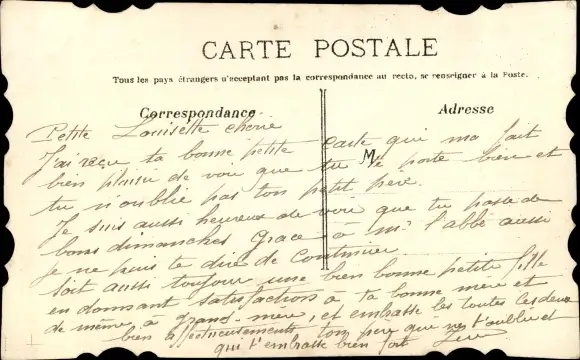 CARTE POSTALE
Tous les pays étrangers n'acceptant pas la correspondance au recto, se renseigner à la Poste.
Correspondance
Adresse
M
Petite Louisette chérie
J'ai reçu ta bonne petite carte qui ma fait
bien plaisir de voir que tu te porte bien et
tu n'oublie pas ton petit père.
Je suis aussi heureux de voir que tu passe de
bons dimanches Grace a Mr l'abbé aussi
je ne puis te dire de Continuer
soit aussi toujour une bien bonne petite fille
en donnant satisfactions a ta bonne mère et
de même à grand-mère, et embrasse les toutes les deux
bien affectueusement, ton père que ne t'oublie et
qui t'embrasse bien fort